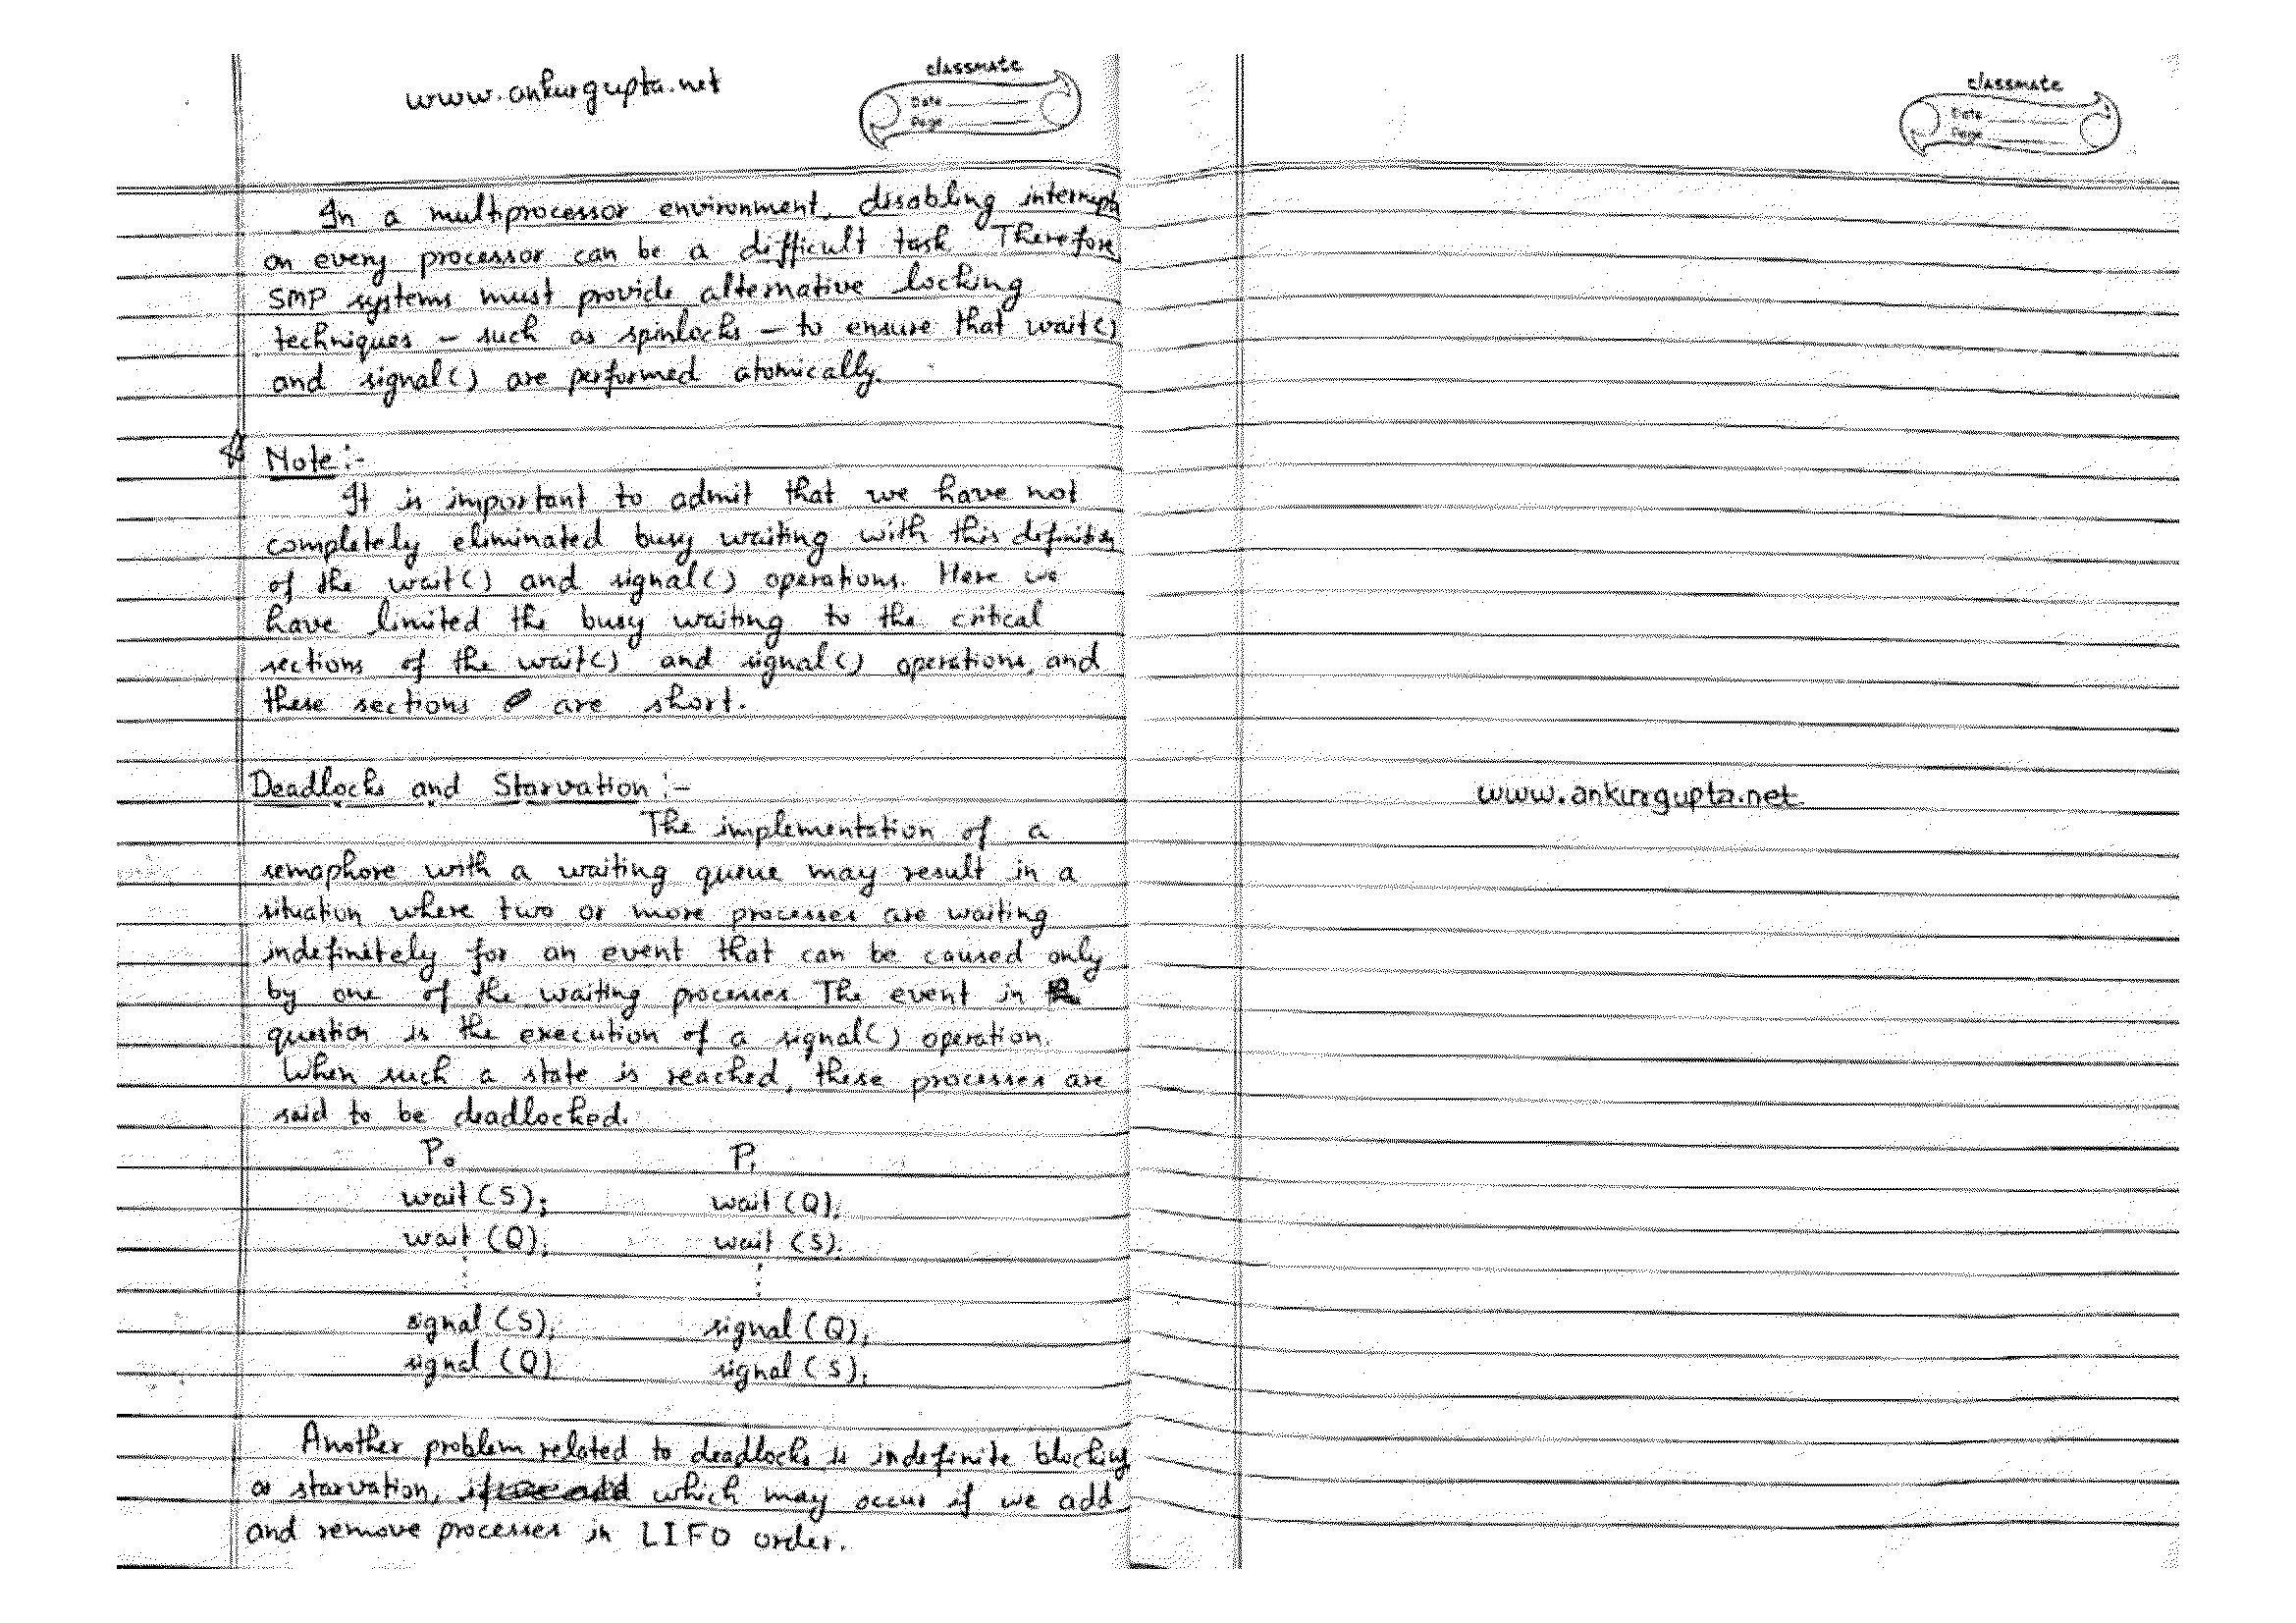 www.ankurgupta.net
classmate
Date
Page
In a multiprocessor environment, disabling interrupts
on every processor can be a difficult task. Therefore
SMP systems must provide alternative locking
techniques – such as spinlocks – to ensure that wait()
and signal() are performed atomically.
☆ Note :-
It is important to admit that we have not
completely eliminated busy waiting with this definition
of the wait() and signal() operations. Here we
have limited the busy waiting to the critical
sections of the wait() and signal() operations, and
these sections are short.
Deadlocks and Starvation :-
The implementation of a
semaphore with a waiting queue may result in a
situation where two or more processes are waiting
indefinitely for an event that can be caused only
by one of the waiting processes. The event in
question is the execution of a signal() operation.
When such a state is reached, these processes are
said to be deadlocked.
P₀ P₁
wait (S); wait (Q);
wait (Q); wait (S);
⋮ ⋮
signal (S); signal (Q);
signal (Q); signal (S);
Another problem related to deadlocks is indefinite blocking
or starvation, which may occur if we add
and remove processes in LIFO order.
classmate
Date
Page
www.ankurgupta.net